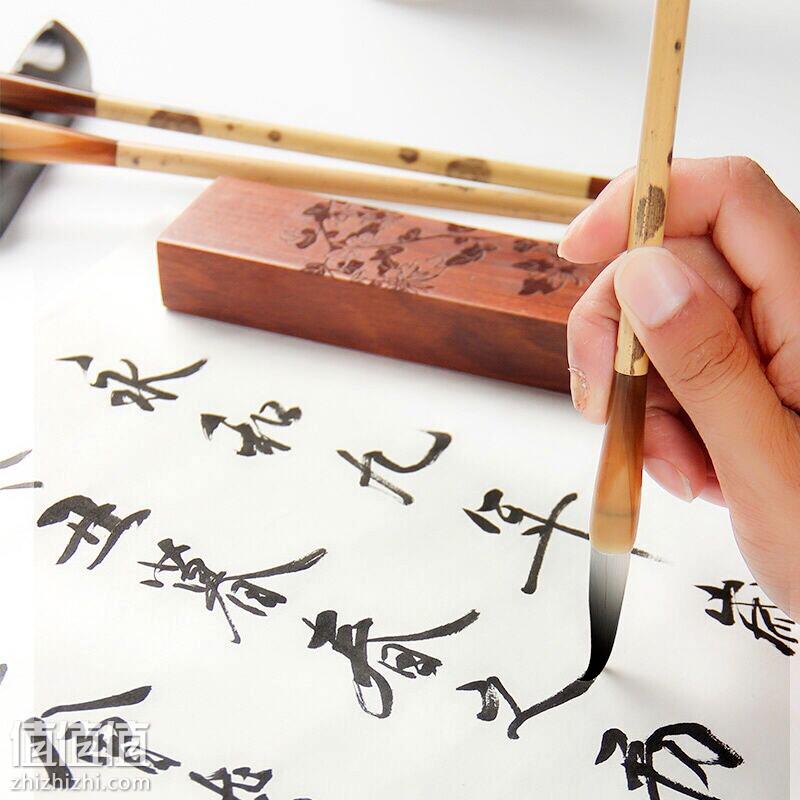 永和九年歲
丑暮春之初
值值值
zhizhizhi.com